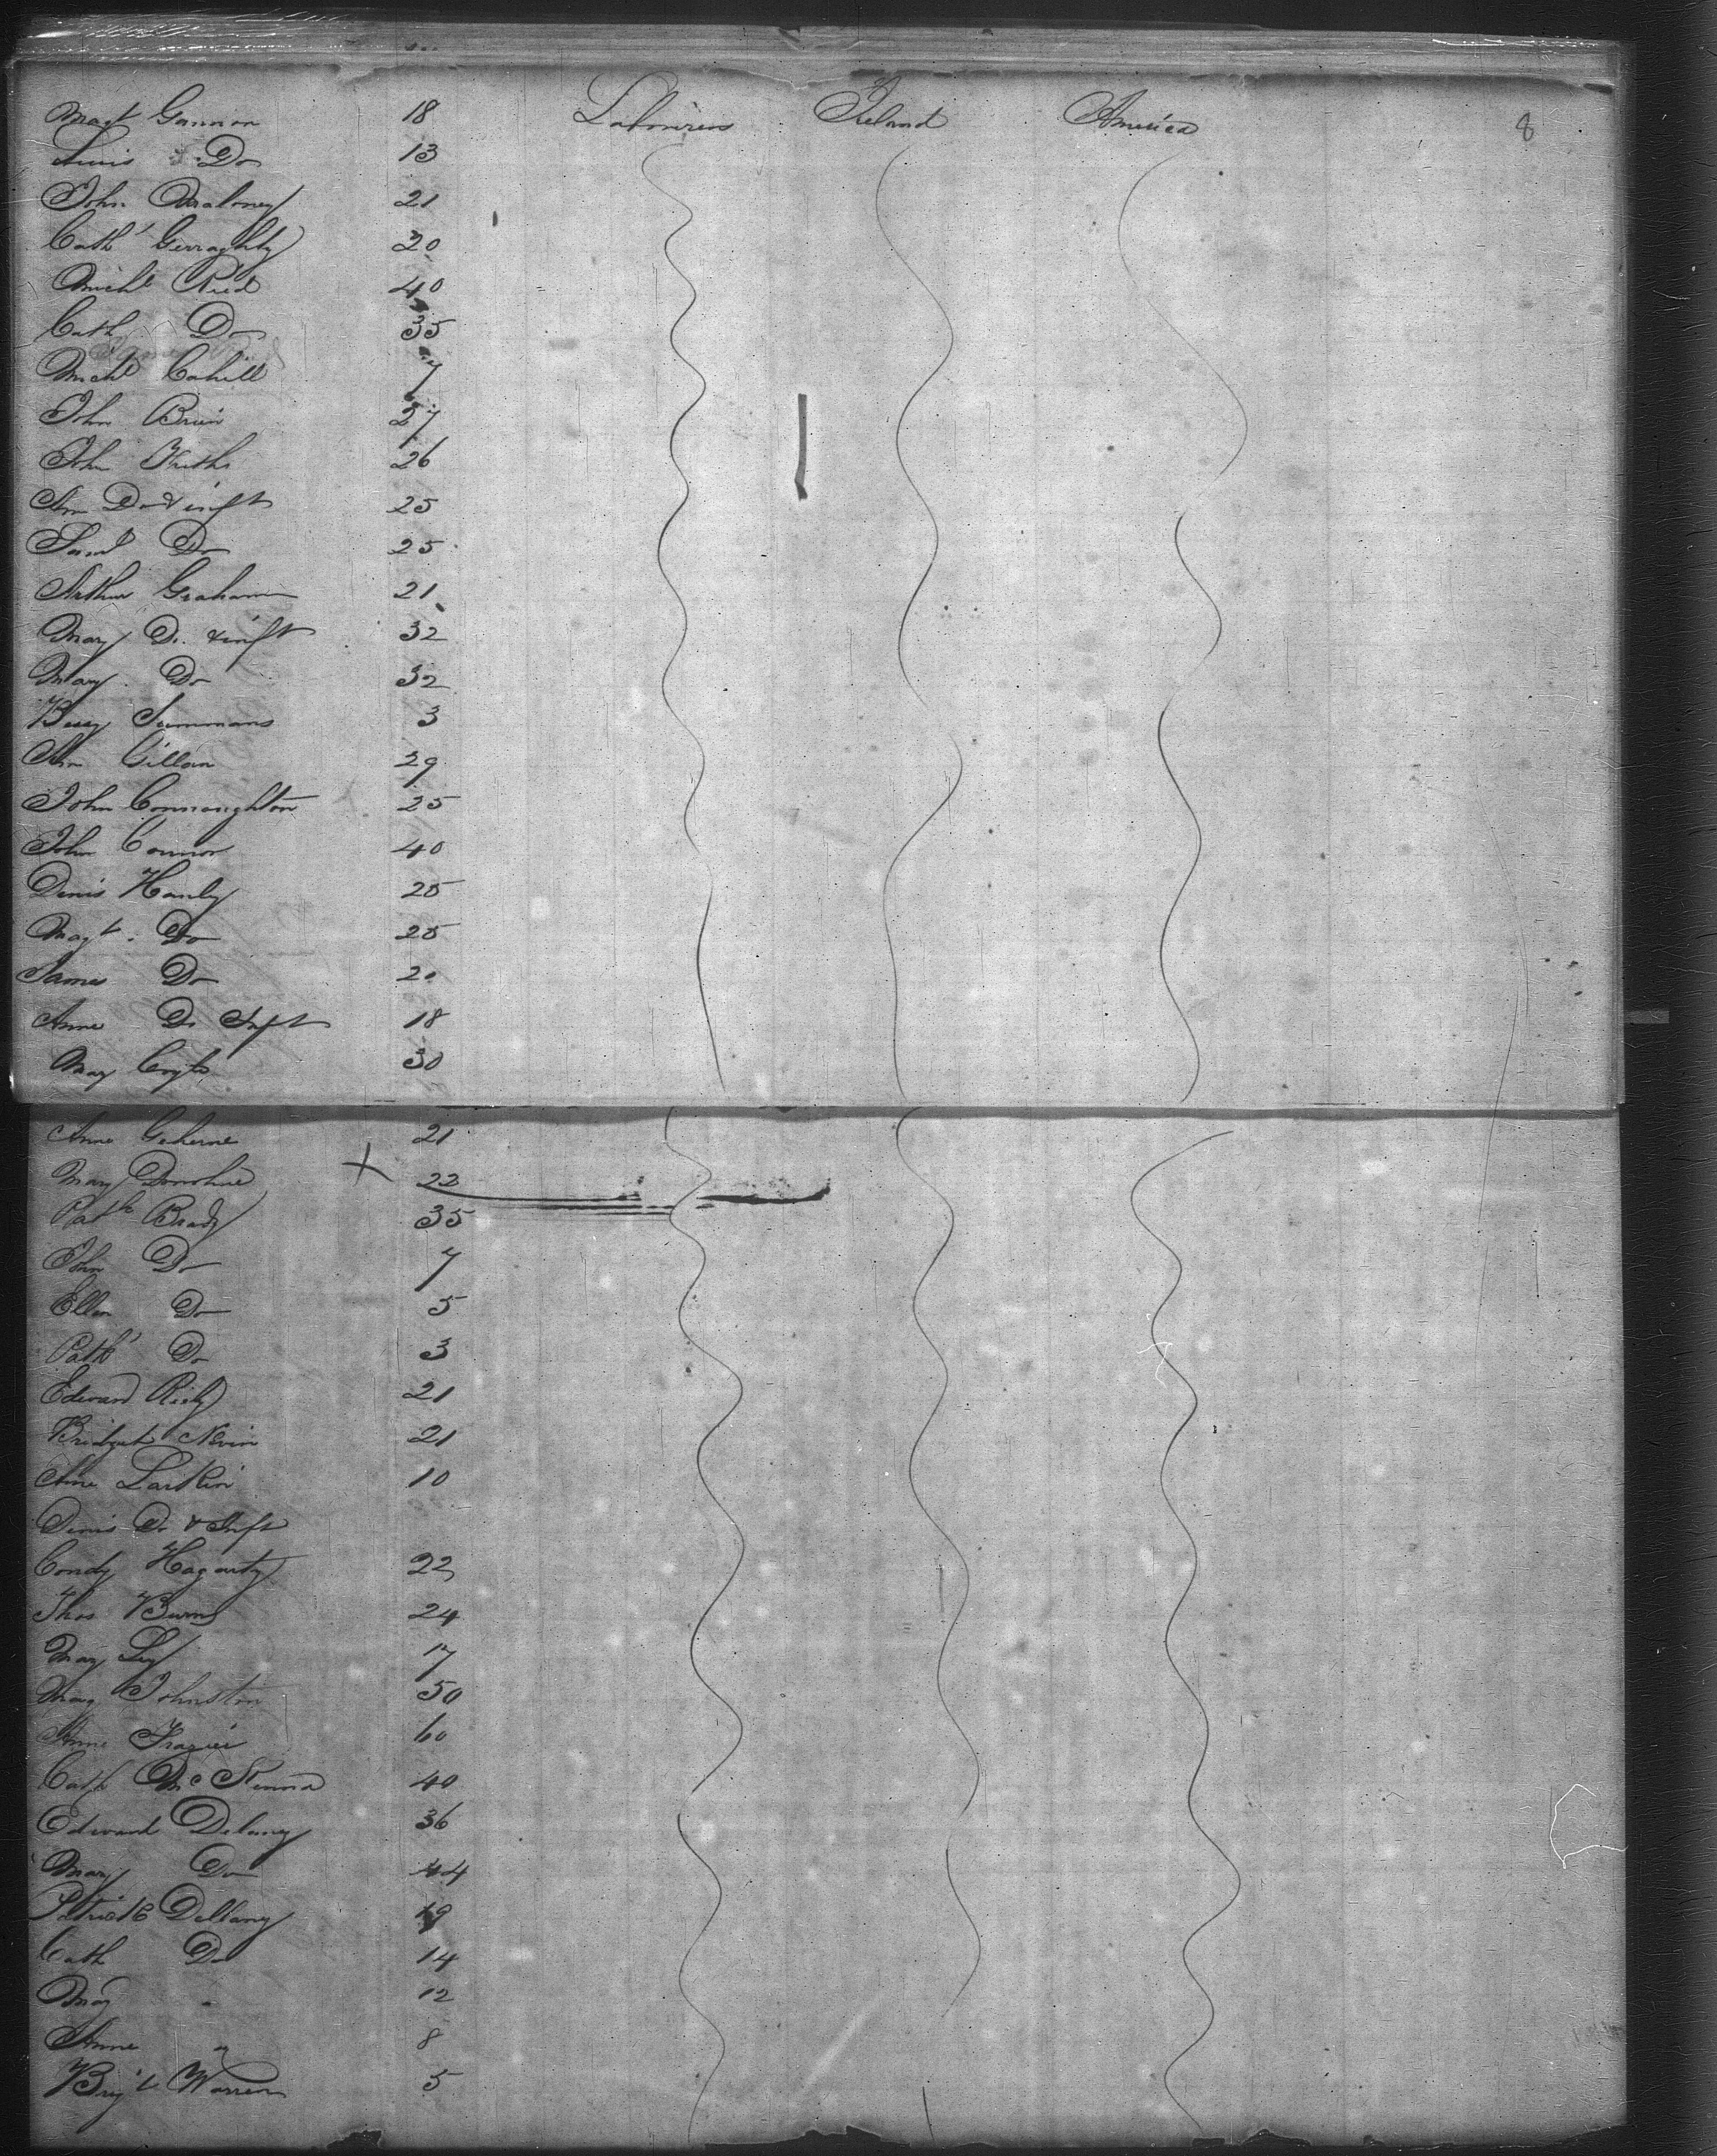 Magt Gannon 18 Labourers Ireland America 8
Do 13
John Maloney 21
Cath Gerraghty 20
Michl Reed 40
Cath Do 35
Michl Cahill 7
John Brien 27
John Keith 26
Ann Do & inft 25
Saml Do 25
Arthur Graham 21
Mary Do & inft 32
Mary Do 32
Summans 3
Ann Gillan 29
John Connaughton 25
John Connor 40
Denis Hanly 25
Magt. Do 25
James Do 20
Anne Do Inft 18
May Coyle 30
Anne 21
Mary Donohue + 22
Patk Brady 35
John Do 7
Ellen Do 5
Patk Do 3
Edward 21
Bridget Nevin 21
Anne Larkin 10
Denis Do & Inft
Condy Hagarty 22
Thos Burns 24
May 17
May Johnston 50
Anne Frazier 60
Cath McKenna 40
Edward Delaney 36
Mary Do 44
Patrick Dellany 19
Cath Do 14
May " 12
Anne " 8
Brigt Warren 5